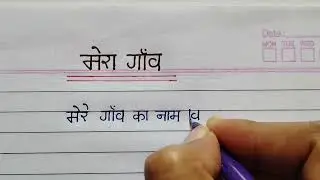 Date:
MON TUE WED
मेरा गाँव
मेरे गाँव का नाम